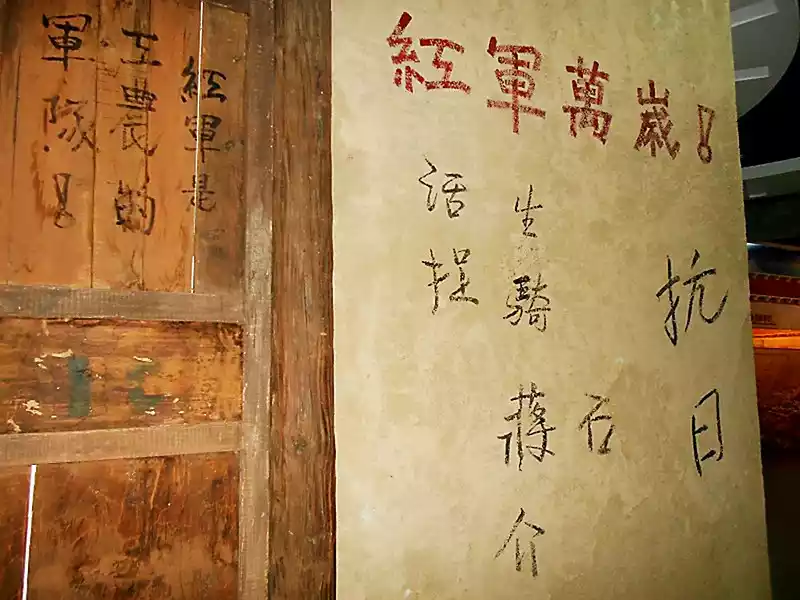 紅軍是
工農的
軍隊！
紅軍萬歲！
抗日
生騎蔣介
石
活捉